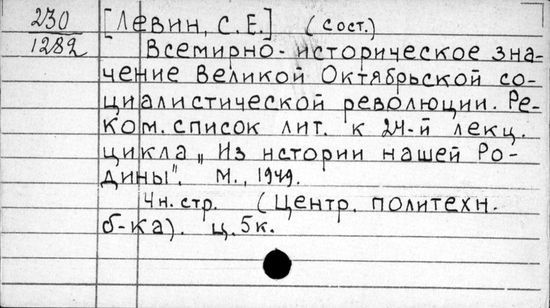 230 [Левин, С. Е.] (сост.)
1282 Всемирно-историческое зна-
чение Великой Октябрьской со-
циалистической революции. Ре-
ком. список лит. к 24-й лекц.
цикла „Из истории нашей Ро-
дины". М., 1949.
4 н. стр. (Центр. политехн.
б-ка). ц. 5 к.